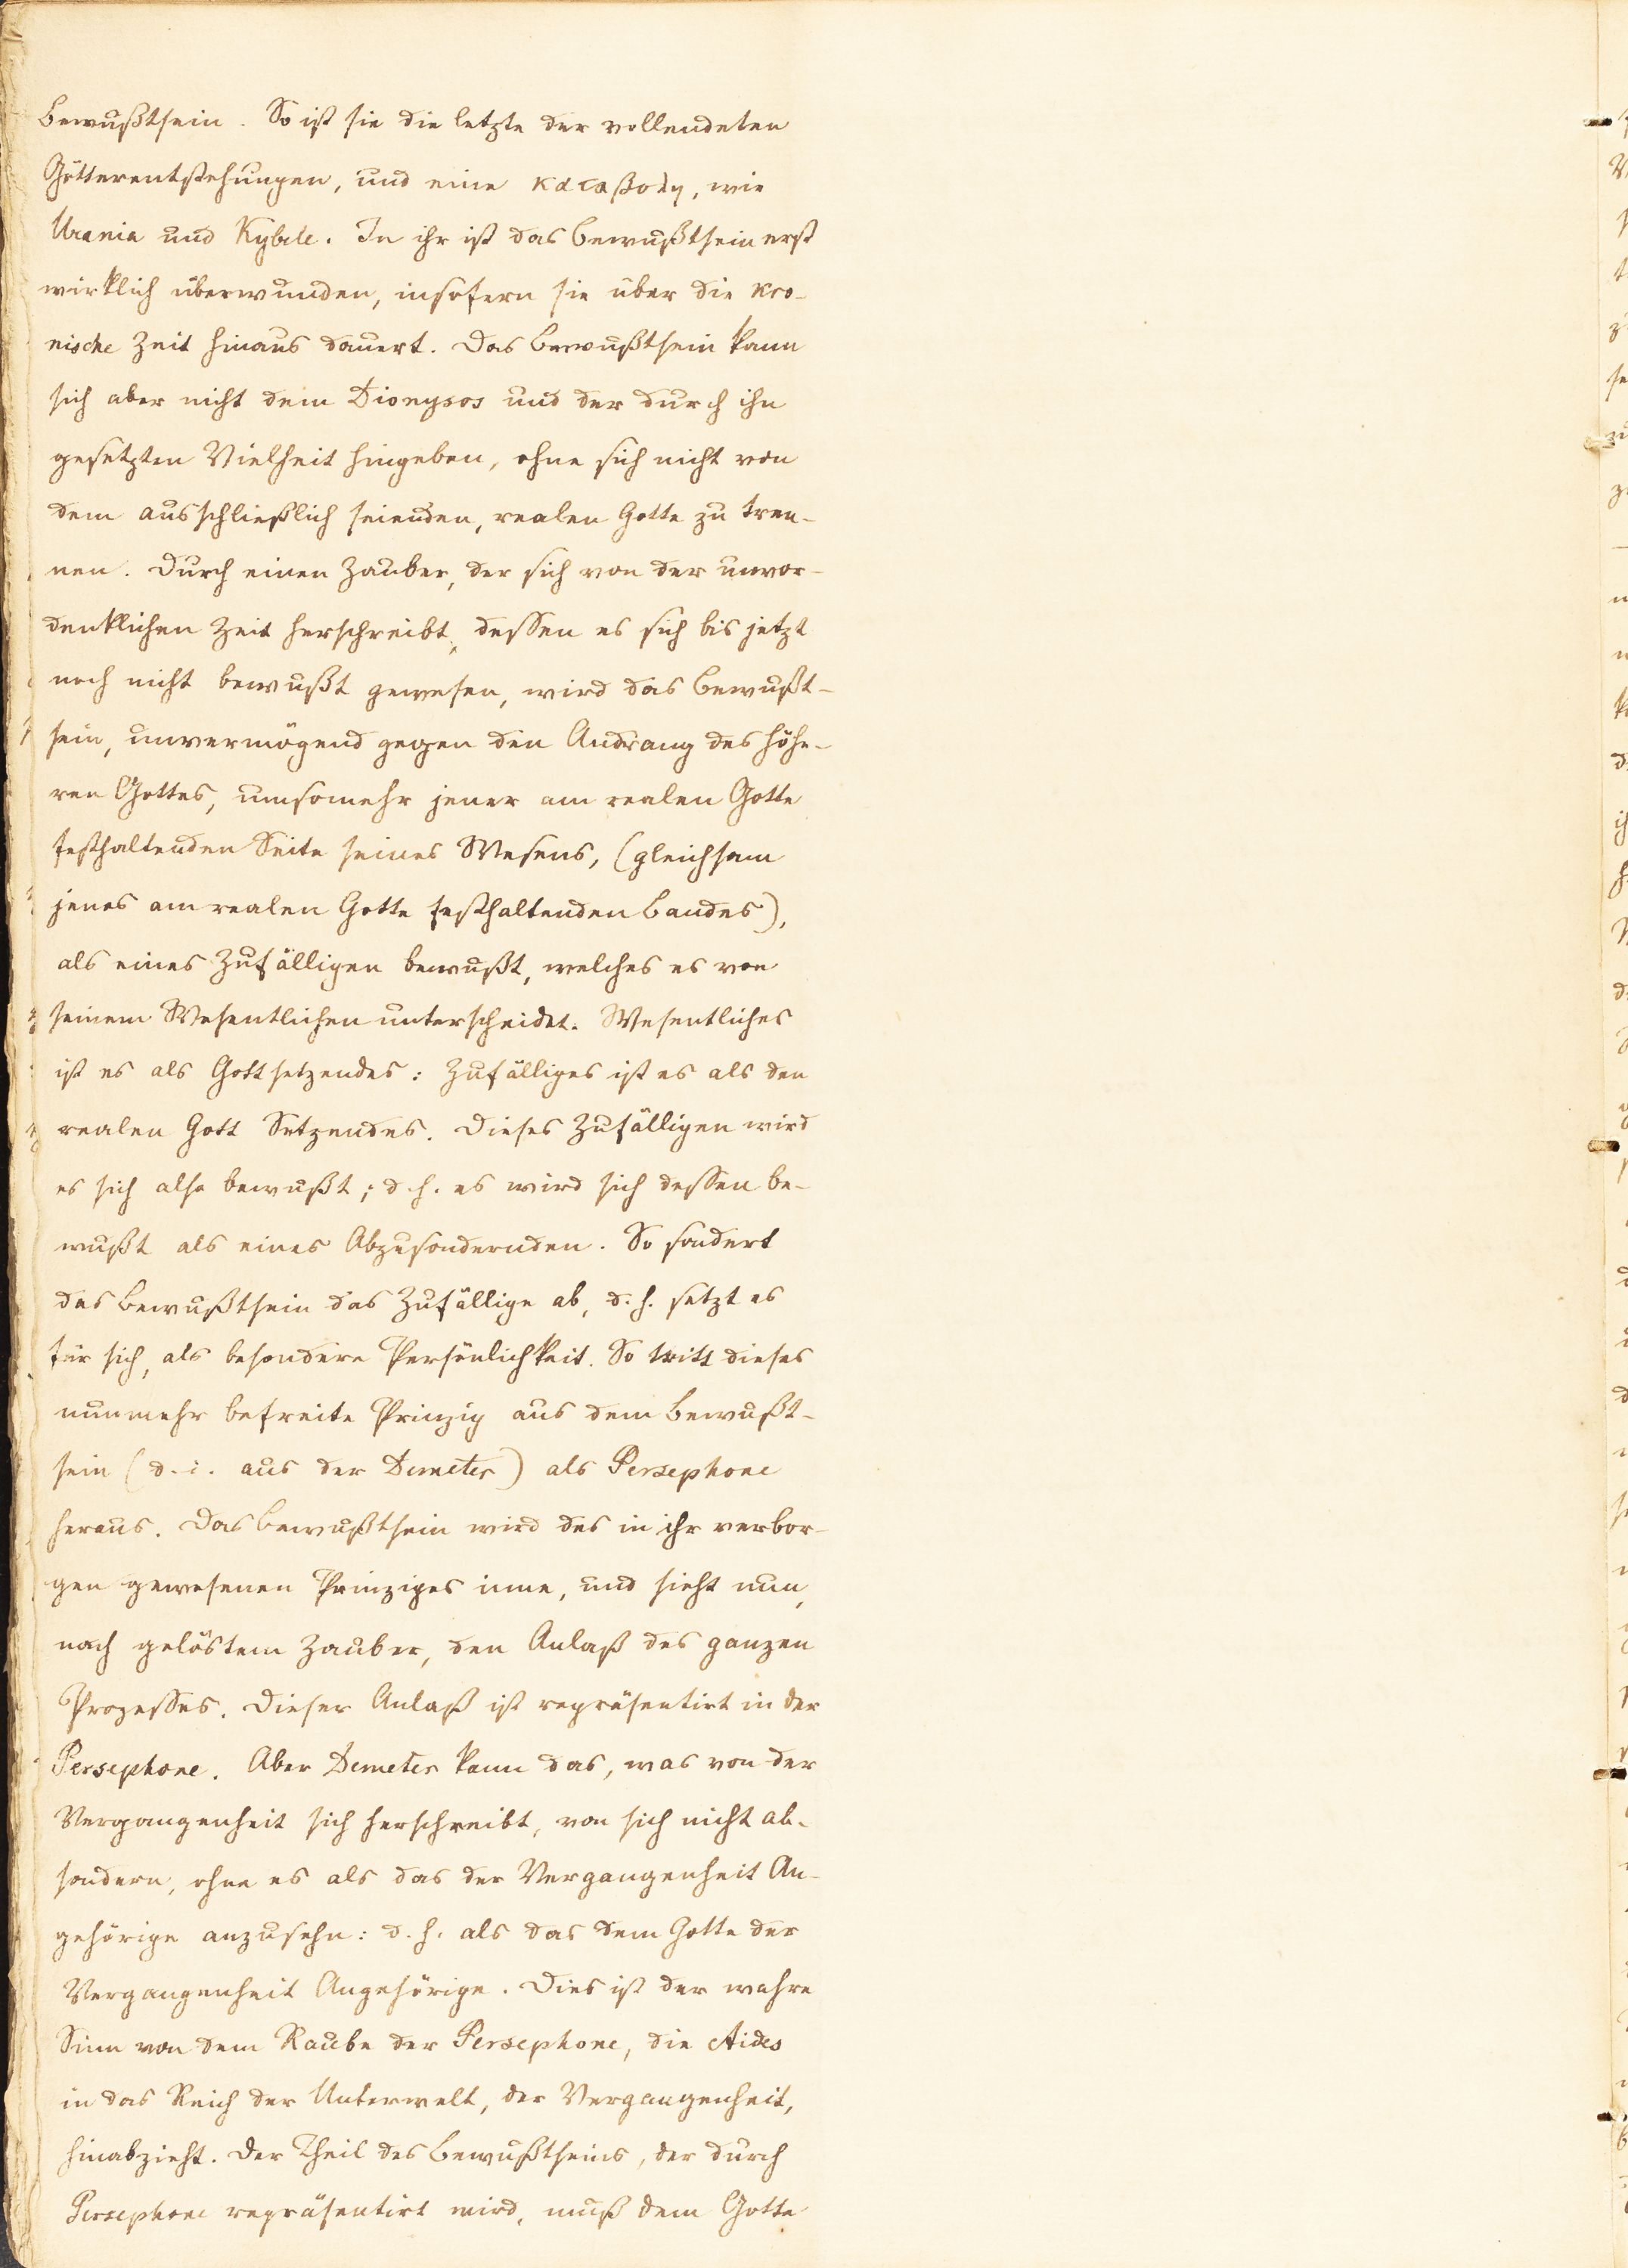 Bewußtsein. So ist sie die letzte der vollendeten
Götterentstehungen, und eine καταβολη, wie
Urania und Kybele. In ihr ist das Bewußtsein erst
wirklich überwunden, insofern sie über die Kro-
nische Zeit hinaus dauert. Das Bewußtsein kann
sich aber nicht dem Dionysos und der durch ihn
gesetzten Vielheit hingeben, ohne sich nicht von
dem ausschließlich seienden, realen Gotte zu tren-
nen. Durch einen Zauber, der sich von der unvor-
denklichen Zeit herschreibt, dessen es sich bis jetzt
noch nicht bewußt gewesen, wird das Bewußt-
sein, unvermögend gegen den Andrang des höhe-
ren Gottes, umsomehr jener am realen Gotte
festhaltenden Seite seines Wesens, (gleichsam
jenes am realen Gotte festhaltenden Bandes),
als eines Zufälligen bewußt, welches es von
seinem Wesentlichen unterscheidet. Wesentliches
ist es als Gott setzendes: Zufälliges ist es als den
realen Gott Setzendes. Dieses Zufälligen wird
es sich also bewußt; d. h. es wird sich dessen be-
wußt als eines Abzusondernden. So sondert
das Bewußtsein das Zufällige ab, d. h. setzt es
für sich, als besondere Persönlichkeit. So tritt dieses
nunmehr befreite Prinzip aus dem Bewußt-
sein (d. i. aus der Demeter) als Persephone
heraus. Das Bewußtsein wird des in ihr verbor-
gen gewesenen Prinzipes inne, und sieht nun,
nach gelöstem Zauber, den Anlaß des ganzen
Prozesses. Dieser Anlaß ist repräsentirt in der
Persephone. Aber Demeter kann das, was von der
Vergangenheit sich herschreibt, von sich nicht ab-
sondern, ohne es als das der Vergangenheit An-
gehörige anzusehn: d. h. als das dem Gotte der
Vergangenheit Angehörige. Dies ist der wahre
Sinn von dem Raube der Persephone, die Aides
in das Reich der Unterwelt, der Vergangenheit,
hinabzieht. Der Theil des Bewußtseins, der durch
Persephone repräsentirt wird, muß dem Gotte